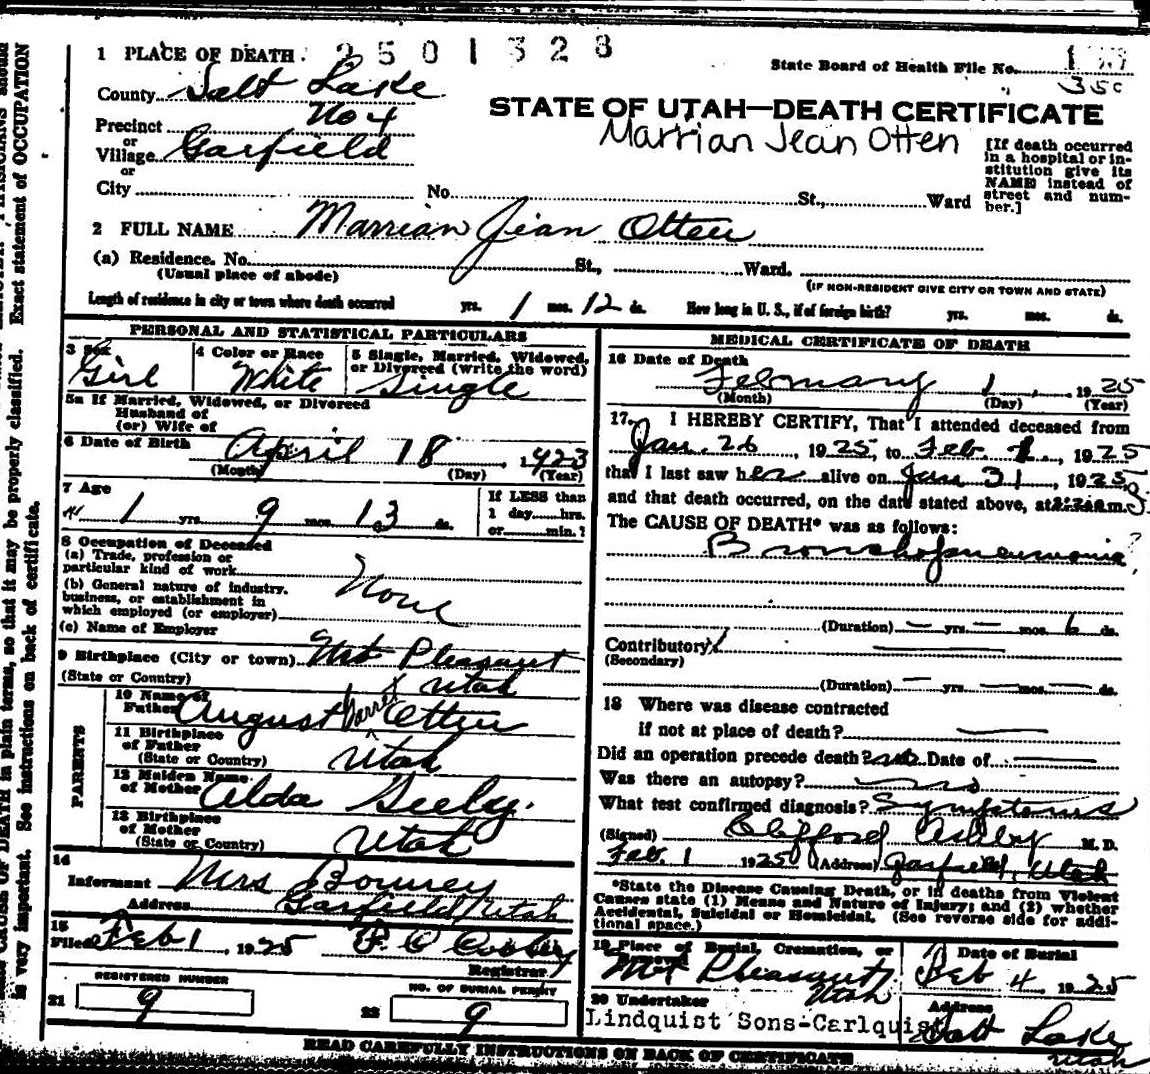 PHYSICIANS should
Exact statement of OCCUPATION
properly classified.
CAUSE OF DEATH in plain terms, so that it may be
is very important. See instructions on back of certificate.
1 PLACE OF DEATH. 2501328
State Board of Health File No.
350
County Salt Lake
STATE OF UTAH—DEATH CERTIFICATE
Precinct No 4
Marrian Jean Otten
or
Village Garfield
or
[If death occurred
in a hospital or in-
stitution give its
NAME instead of
street and num-
ber.]
City No. St., Ward
2 FULL NAME Marrian Jean Otten
(a) Residence. No. St., Ward.
(Usual place of abode)
(IF NON-RESIDENT GIVE CITY OR TOWN AND STATE)
Length of residence in city or town where death occurred yrs. 1 mos. 12 ds. How long in U. S., if of foreign birth? yrs. mos. ds.
PERSONAL AND STATISTICAL PARTICULARS
3 Sex
Girl
4 Color or Race
White
5 Single, Married, Widowed,
or Divorced (write the word)
Single
5a If Married, Widowed, or Divorced
Husband of
(or) Wife of
6 Date of Birth April 18, 1923
(Month) (Day) (Year)
7 Age
1 yrs. 9 mos. 13 ds.
If LESS than
1 day......hrs.
or......min.?
8 Occupation of Deceased
(a) Trade, profession or
particular kind of work
(b) General nature of industry,
business, or establishment in
which employed (or employer)
None
(c) Name of Employer
9 Birthplace (City or town) Mt Pleasant
(State or Country) Utah
PARENTS
10 Name of
Father August Darrel Otten
11 Birthplace
of Father
(State or Country) Utah
12 Maiden Name
of Mother Alda Seely.
13 Birthplace
of Mother
(State or Country) Utah
14
Informant Mrs
Address Garfield, Utah
15
Filed Feb 1, 1925
Registrar
REGISTERED NUMBER
21 9
NO. OF BURIAL PERMIT
22 9
MEDICAL CERTIFICATE OF DEATH
16 Date of Death
February 1, 1925
(Month) (Day) (Year)
17. I HEREBY CERTIFY, That I attended deceased from
Jan. 26, 1925, to Feb. 1, 1925
that I last saw her alive on Jan 31, 1925,
and that death occurred, on the date stated above, at m.
The CAUSE OF DEATH* was as follows:
Bronchopneumonia
(Duration) — yrs. — mos. 6 ds.
Contributory
(Secondary)
(Duration) — yrs. — mos. — ds.
18 Where was disease contracted
if not at place of death? —
Did an operation precede death? no Date of —
Was there an autopsy? no
What test confirmed diagnosis? Symptoms
(Signed) Clifford Ashby M. D.
Feb. 1 1925 (Address) Garfield, Utah
*State the Disease Causing Death, or in deaths from Violent
Causes state (1) Means and Nature of Injury; and (2) whether
Accidental, Suicidal or Homicidal. (See reverse side for addi-
tional space.)
19 Place of Burial, Cremation, or
Removal
Mt Pleasant,
Utah
Date of Burial
Feb 4 1925
20 Undertaker
Lindquist Sons-Carlquist
Address
Salt Lake
Utah
READ CAREFULLY INSTRUCTIONS ON BACK OF CERTIFICATE